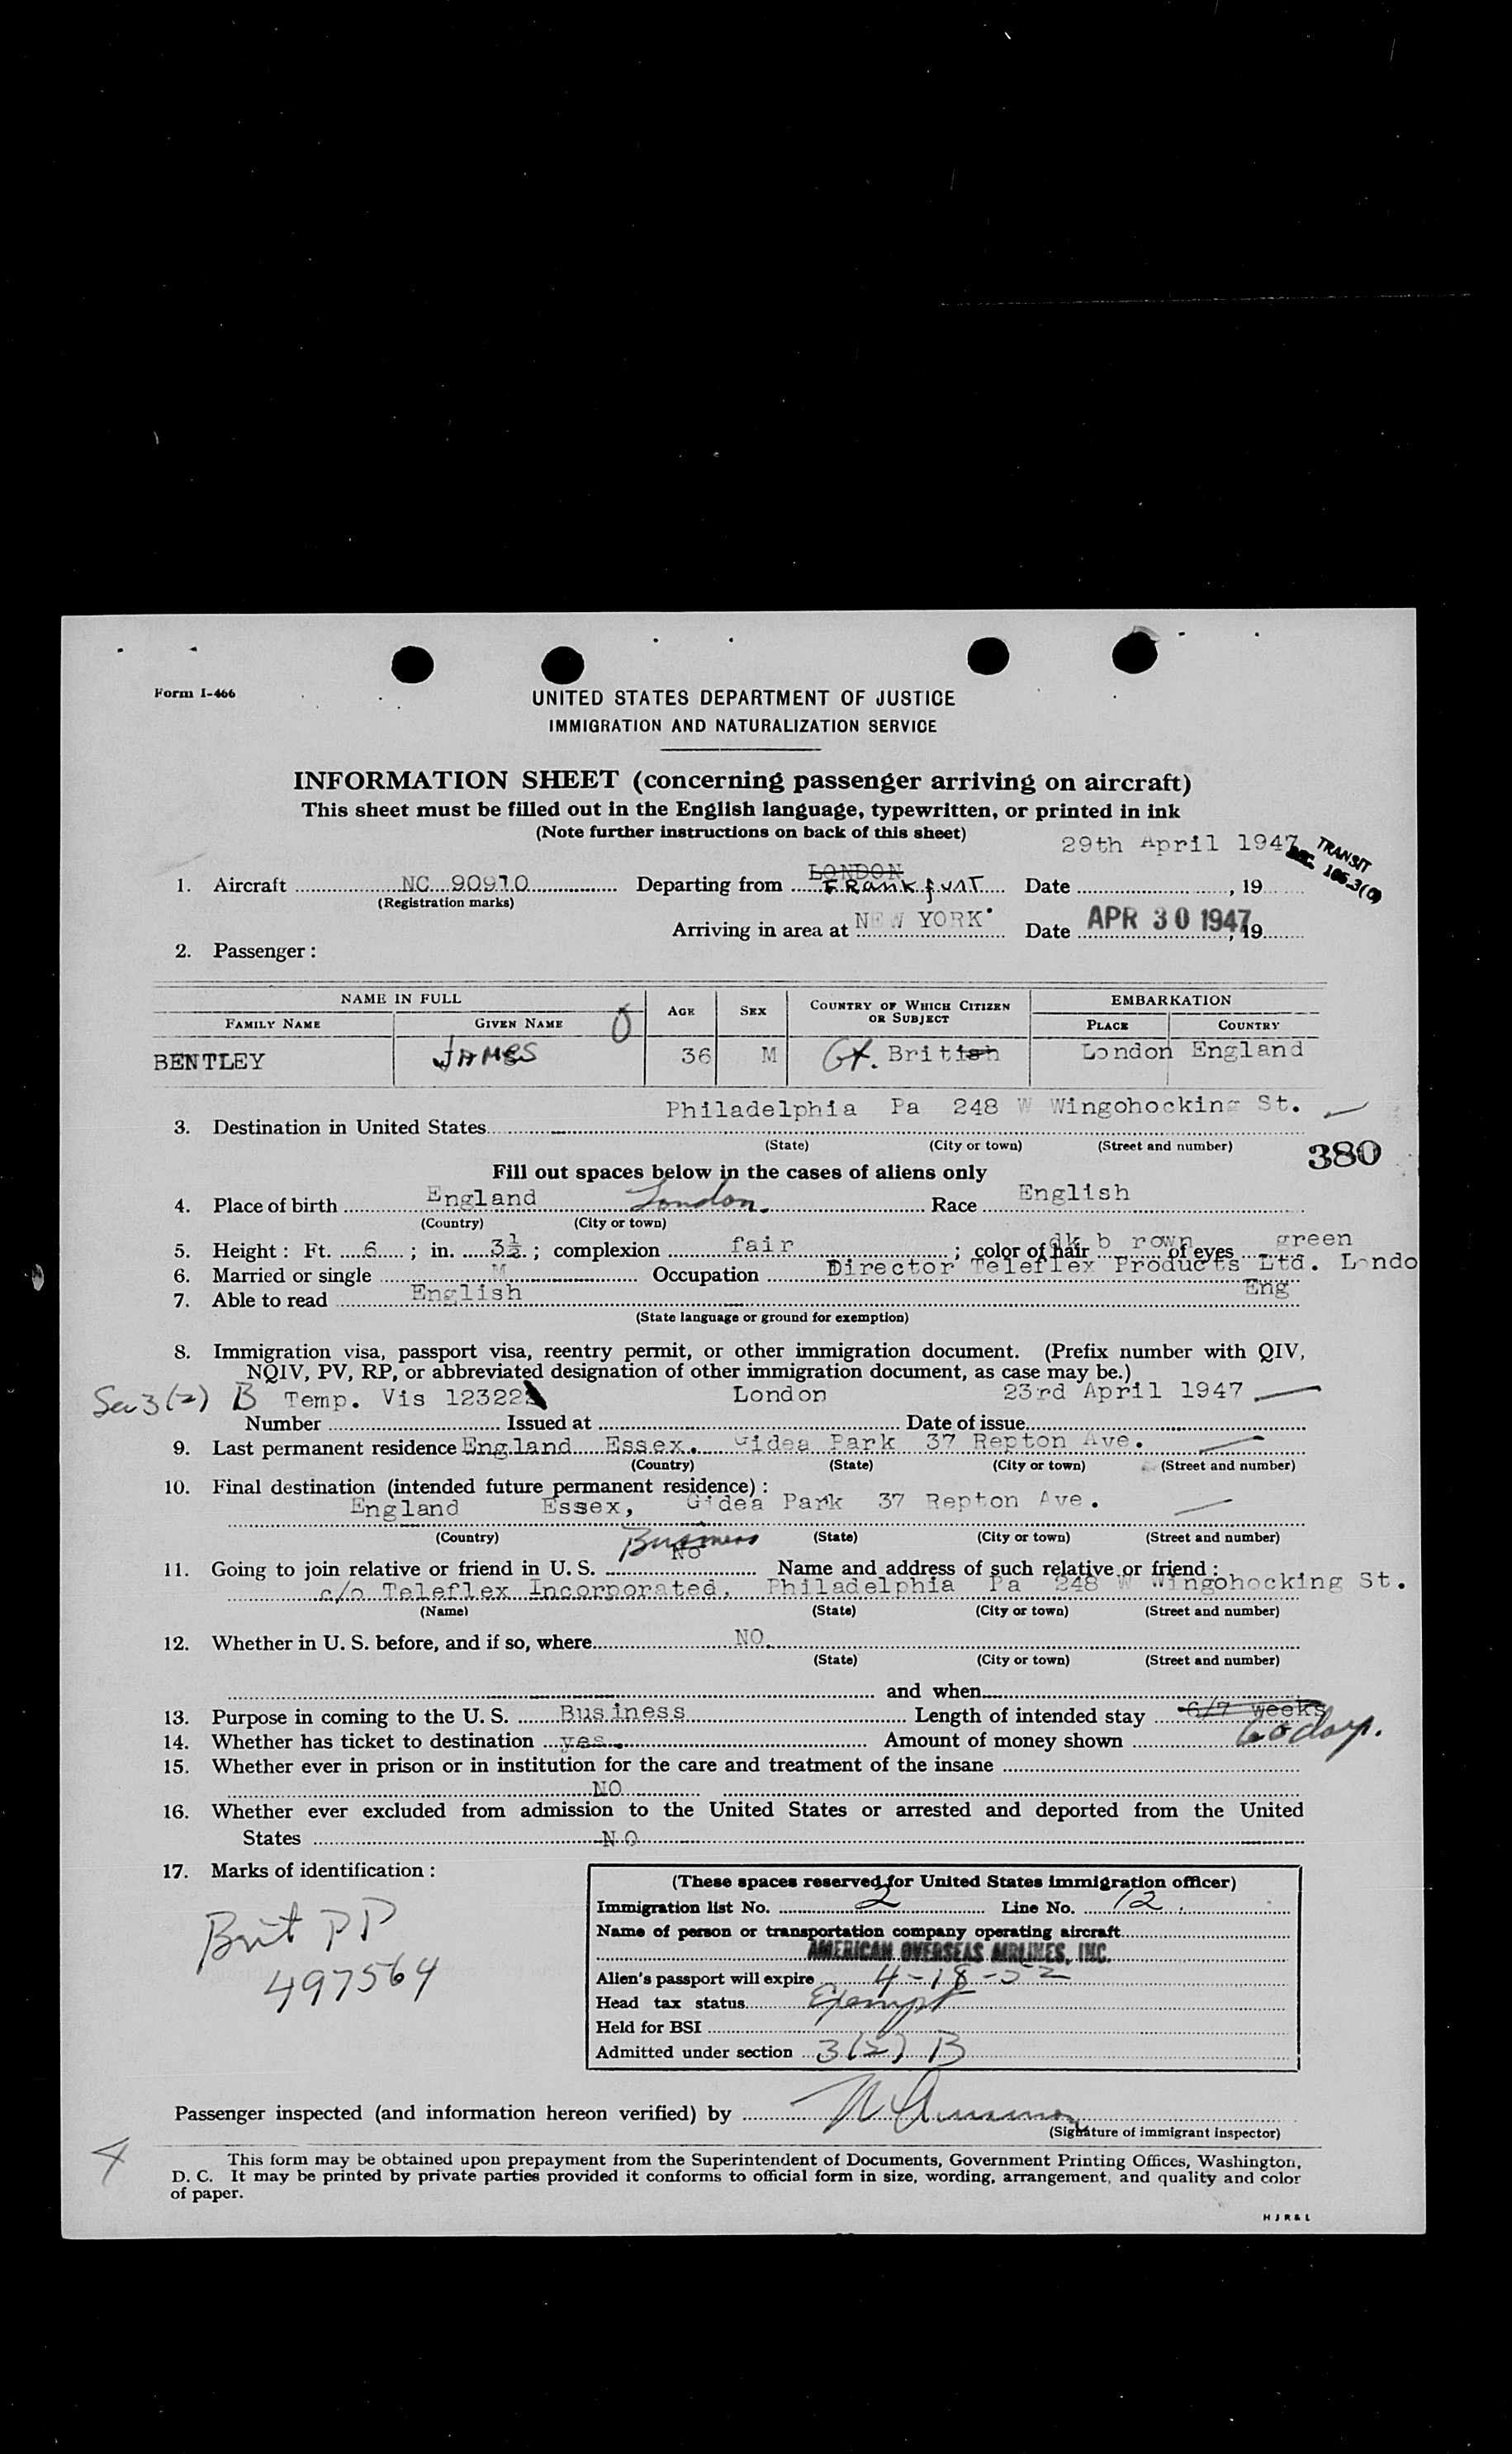 Form I-466
UNITED STATES DEPARTMENT OF JUSTICE
IMMIGRATION AND NATURALIZATION SERVICE
INFORMATION SHEET (concerning passenger arriving on aircraft)
This sheet must be filled out in the English language, typewritten, or printed in ink
(Note further instructions on back of this sheet)
29th April 1947
TRANSIT
SEC. 105.3(c)
LONDON
1. Aircraft NC 90910 Departing from FRankfurT Date , 19
(Registration marks)
Arriving in area at NEW YORK Date APR 30 1947, 19
2. Passenger :
NAME IN FULL AGE SEX COUNTRY OF WHICH CITIZEN OR SUBJECT EMBARKATION
FAMILY NAME GIVEN NAME PLACE COUNTRY
BENTLEY JAMES 36 M Gt. British London England
Philadelphia Pa 248 W Wingohocking St.
3. Destination in United States
(State) (City or town) (Street and number)
380
Fill out spaces below in the cases of aliens only
4. Place of birth England London. Race English
(Country) (City or town)
5. Height : Ft. 6 ; in. 3½ ; complexion fair ; color of hair dk b rown of eyes green
6. Married or single M Occupation Director Teleflex Products Ltd. Londo
Eng
7. Able to read English
(State language or ground for exemption)
8. Immigration visa, passport visa, reentry permit, or other immigration document. (Prefix number with QIV,
NQIV, PV, RP, or abbreviated designation of other immigration document, as case may be.)
Sec 3(2) B Temp. Vis 12322 London 23rd April 1947
Number Issued at Date of issue
9. Last permanent residence England Essex. Gidea Park 37 Repton Ave.
(Country) (State) (City or town) (Street and number)
10. Final destination (intended future permanent residence) :
England Essex, Gidea Park 37 Repton Ave.
(Country) (State) (City or town) (Street and number)
Business
11. Going to join relative or friend in U. S. No Name and address of such relative or friend :
c/o Teleflex Incorporated, Philadelphia Pa 248 W Wingohocking St.
(Name) (State) (City or town) (Street and number)
12. Whether in U. S. before, and if so, where NO
(State) (City or town) (Street and number)
and when
13. Purpose in coming to the U. S. Business Length of intended stay 6/7 weeks
60 days.
14. Whether has ticket to destination yes. Amount of money shown
15. Whether ever in prison or in institution for the care and treatment of the insane
NO
16. Whether ever excluded from admission to the United States or arrested and deported from the United
States NO
17. Marks of identification :
Brit PP
497564
(These spaces reserved for United States immigration officer)
Immigration list No. 2 Line No. 12
Name of person or transportation company operating aircraft
AMERICAN OVERSEAS AIRLINES, INC.
Alien's passport will expire 4-18-52
Head tax status Exempt
Held for BSI
Admitted under section 3(2) B
Passenger inspected (and information hereon verified) by
(Signature of immigrant inspector)
4
This form may be obtained upon prepayment from the Superintendent of Documents, Government Printing Offices, Washington,
D. C. It may be printed by private parties provided it conforms to official form in size, wording, arrangement, and quality and color
of paper.
H J R & L